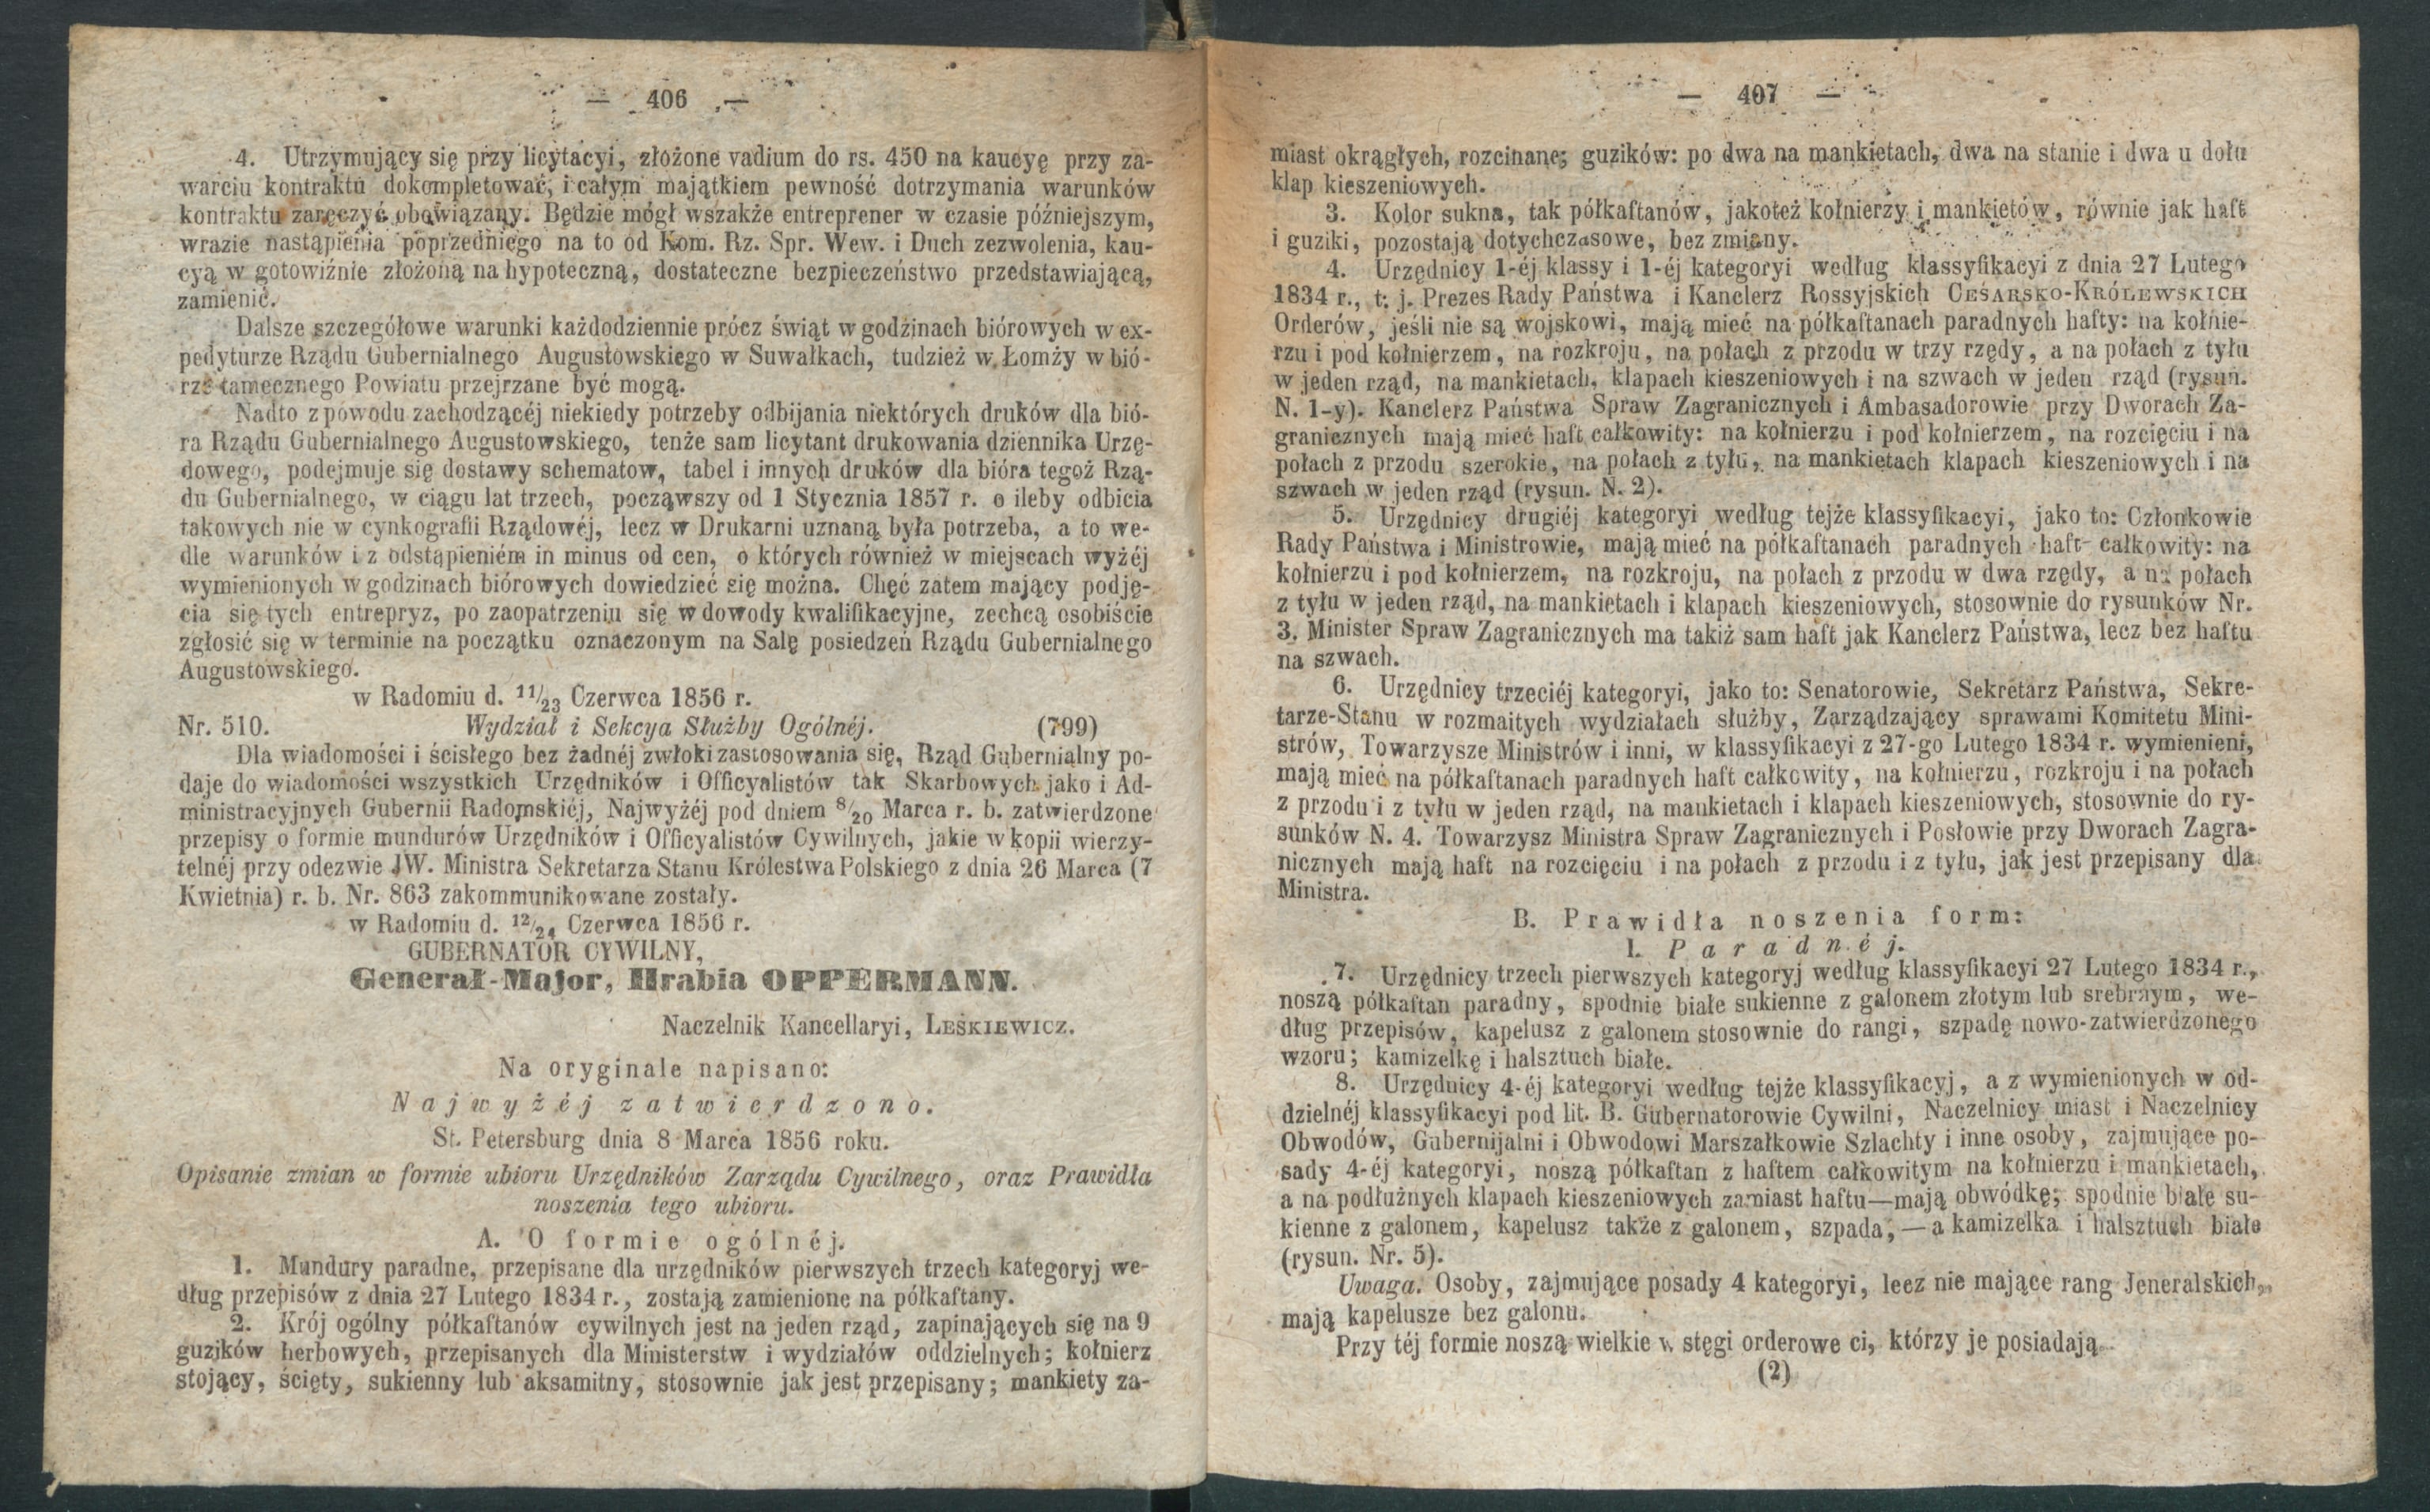 — 406 —
4. Utrzymujący się przy licytacyi, złożone vadium do rs. 450 na kaucyę przy za-
warciu kontraktu dokompletować, i całym majątkiem pewność dotrzymania warunków
kontraktu zaręczyć obowiązany. Będzie mógł wszakże entreprener w czasie późniejszym,
wrazie nastąpienia poprzedniego na to od Kom. Rz. Spr. Wew. i Duch zezwolenia, kau-
cyą w gotowiźnie złożoną na hypoteczną, dostateczne bezpieczeństwo przedstawiającą,
zamienić.
Dalsze szczegółowe warunki każdodziennie prócz świąt w godzinach biórowych w ex-
pedyturze Rządu Gubernialnego Augustowskiego w Suwałkach, tudzież w Łomży w bió-
rze tamecznego Powiatu przejrzane być mogą.
Nadto z powodu zachodzącéj niekiedy potrzeby odbijania niektórych druków dla bió-
ra Rządu Gubernialnego Augustowskiego, tenże sam licytant drukowania dziennika Urzę-
dowego, podejmuje się dostawy schematow, tabel i innych druków dla bióra tegoż Rzą-
du Gubernialnego, w ciągu lat trzech, począwszy od 1 Stycznia 1857 r. o ileby odbicia
takowych nie w cynkografii Rządowéj, lecz w Drukarni uznaną była potrzeba, a to we-
dle warunków i z odstąpieniém in minus od cen, o których również w miejscach wyżéj
wymienionych w godzinach biórowych dowiedzieć się można. Chęć zatem mający podję-
cia się tych entrepryz, po zaopatrzeniu się w dowody kwalifikacyjne, zechcą osobiście
zgłosić się w terminie na początku oznaczonym na Salę posiedzeń Rządu Gubernialnego
Augustowskiego.
w Radomiu d. 11/23 Czerwca 1856 r.
Nr. 510. Wydział i Sekcya Służby Ogólnéj. (799)
Dla wiadomości i ścisłego bez żadnéj zwłoki zastosowania się, Rząd Gubernialny po-
daje do wiadomości wszystkich Urzędników i Officyalistów tak Skarbowych jako i Ad-
ministracyjnych Gubernii Radomskiéj, Najwyżéj pod dniem 8/20 Marca r. b. zatwierdzone
przepisy o formie mundurów Urzędników i Officyalistów Cywilnych, jakie w kopii wierzy-
telnéj przy odezwie JW. Ministra Sekretarza Stanu Królestwa Polskiego z dnia 26 Marca (7
Kwietnia) r. b. Nr. 863 zakommunikowane zostały.
w Radomiu d. 12/24 Czerwca 1856 r.
GUBERNATOR CYWILNY,
Generał-Major, Hrabia OPPERMANN.
Naczelnik Kancellaryi, LEŚKIEWICZ.
Na oryginale napisano:
Najwyżéj zatwierdzono.
St. Petersburg dnia 8 Marca 1856 roku.
Opisanie zmian w formie ubioru Urzędników Zarządu Cywilnego, oraz Prawidła
noszenia tego ubioru.
A. O formie ogólnéj.
1. Mundury paradne, przepisane dla urzędników pierwszych trzech kategoryj we-
dług przepisów z dnia 27 Lutego 1834 r., zostają zamienione na półkaftany.
2. Krój ogólny półkaftanów cywilnych jest na jeden rząd, zapinających się na 9
guzików herbowych, przepisanych dla Ministerstw i wydziałów oddzielnych; kołnierz
stojący, ścięty, sukienny lub aksamitny, stosownie jak jest przepisany; mankiety za-
— 407 —
miast okrągłych, rozcinane; guzików: po dwa na mankietach, dwa na stanie i dwa u dołu
klap kieszeniowych.
3. Kolor sukna, tak półkaftanów, jakoteż kołnierzy i mankietów, równie jak haft
i guziki, pozostają dotychczasowe, bez zmiany.
4. Urzędnicy 1-éj klassy i 1-éj kategoryi według klassyfikacyi z dnia 27 Lutego
1834 r., t. j. Prezes Rady Państwa i Kanclerz Rossyjskich CESARSKO-KRÓLEWSKICH
Orderów, jeśli nie są wojskowi, mają mieć na półkaftanach paradnych hafty: na kołnie-
rzu i pod kołnierzem, na rozkroju, na połach z przodu w trzy rzędy, a na połach z tyłu
w jeden rząd, na mankietach, klapach kieszeniowych i na szwach w jeden rząd (rysun.
N. 1-y). Kanclerz Państwa Spraw Zagranicznych i Ambasadorowie przy Dworach Za-
granicznych mają mieć haft całkowity: na kołnierzu i pod kołnierzem, na rozcięciu i na
połach z przodu szerokie, na połach z tyłu, na mankietach klapach kieszeniowych i na
szwach w jeden rząd (rysun. N. 2).
5. Urzędnicy drugiéj kategoryi według tejże klassyfikacyi, jako to: Członkowie
Rady Państwa i Ministrowie, mają mieć na półkaftanach paradnych haft całkowity: na
kołnierzu i pod kołnierzem, na rozkroju, na połach z przodu w dwa rzędy, a na połach
z tyłu w jeden rząd, na mankietach i klapach kieszeniowych, stosownie do rysunków Nr.
3. Minister Spraw Zagranicznych ma takiż sam haft jak Kanclerz Państwa, lecz bez haftu
na szwach.
6. Urzędnicy trzeciéj kategoryi, jako to: Senatorowie, Sekretarz Państwa, Sekre-
tarze-Stanu w rozmaitych wydziałach służby, Zarządzający sprawami Komitetu Mini-
strów, Towarzysze Ministrów i inni, w klassyfikacyi z 27-go Lutego 1834 r. wymienieni,
mają mieć na półkaftanach paradnych haft całkowity, na kołnierzu, rozkroju i na połach
z przodu i z tyłu w jeden rząd, na mankietach i klapach kieszeniowych, stosownie do ry-
sunków N. 4. Towarzysz Ministra Spraw Zagranicznych i Posłowie przy Dworach Zagra-
nicznych mają haft na rozcięciu i na połach z przodu i z tyłu, jak jest przepisany dla
Ministra.
B. Prawidła noszenia form:
1. Paradnéj.
7. Urzędnicy trzech pierwszych kategoryj według klassyfikacyi 27 Lutego 1834 r.,
noszą półkaftan paradny, spodnie białe sukienne z galonem złotym lub srebrnym, we-
dług przepisów, kapelusz z galonem stosownie do rangi, szpadę nowo-zatwierdzonego
wzoru; kamizelkę i halsztuch białe.
8. Urzędnicy 4-éj kategoryi według tejże klassyfikacyj, a z wymienionych w od-
dzielnéj klassyfikacyi pod lit. B. Gubernatorowie Cywilni, Naczelnicy miast i Naczelnicy
Obwodów, Gubernijalni i Obwodowi Marszałkowie Szlachty i inne osoby, zajmujące po-
sady 4-éj kategoryi, noszą półkaftan z haftem całkowitym na kołnierzu i mankietach,
a na podłużnych klapach kieszeniowych zamiast haftu—mają obwódkę; spodnie białe su-
kienne z galonem, kapelusz także z galonem, szpada,—a kamizelka i halsztuch białe
(rysun. Nr. 5).
Uwaga. Osoby, zajmujące posady 4 kategoryi, lecz nie mające rang Jeneralskich,
mają kapelusze bez galonu.
Przy téj formie noszą wielkie wstęgi orderowe ci, którzy je posiadają.
(2)